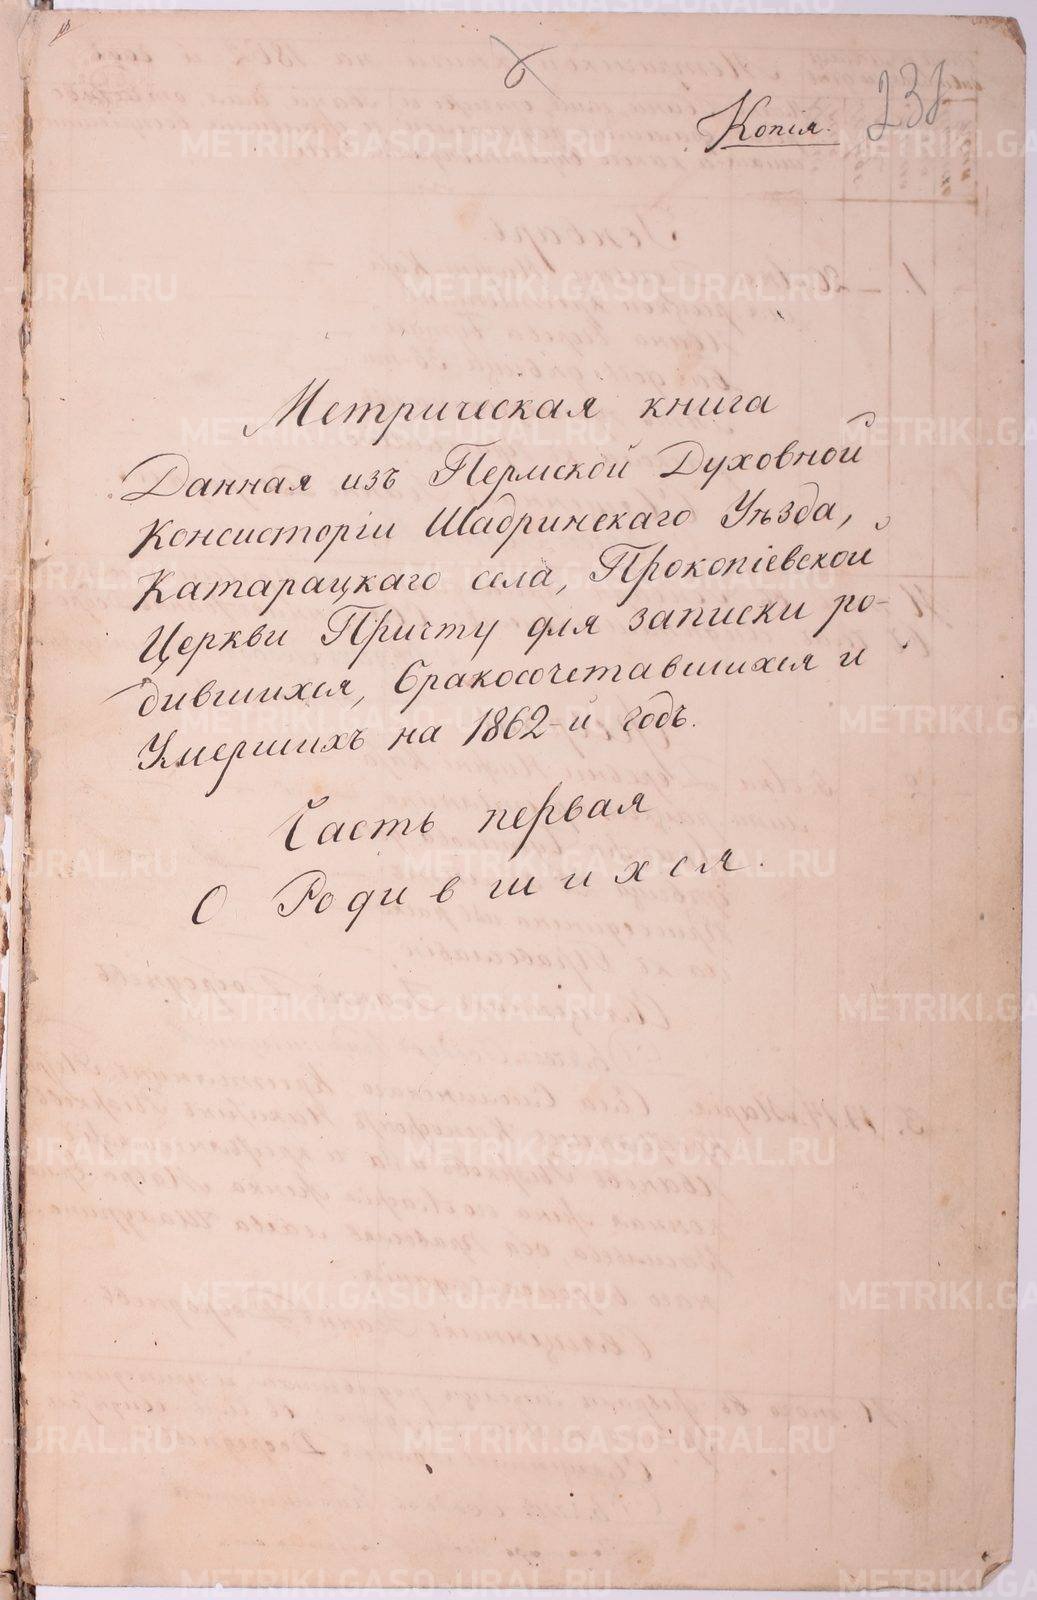 Копія.
Метрическая книга
Данная изъ Пермской Духовной
Консисторіи Шадринскаго Уѣзда,
Катарацкаго села, Прокопіевской
Церкви Причту для записки ро-
дившихся, бракосочетавшихся и
Умершихъ на 1862-й годъ.
Часть первая
О Родившихся.
METRIKI.GASO-URAL.RU